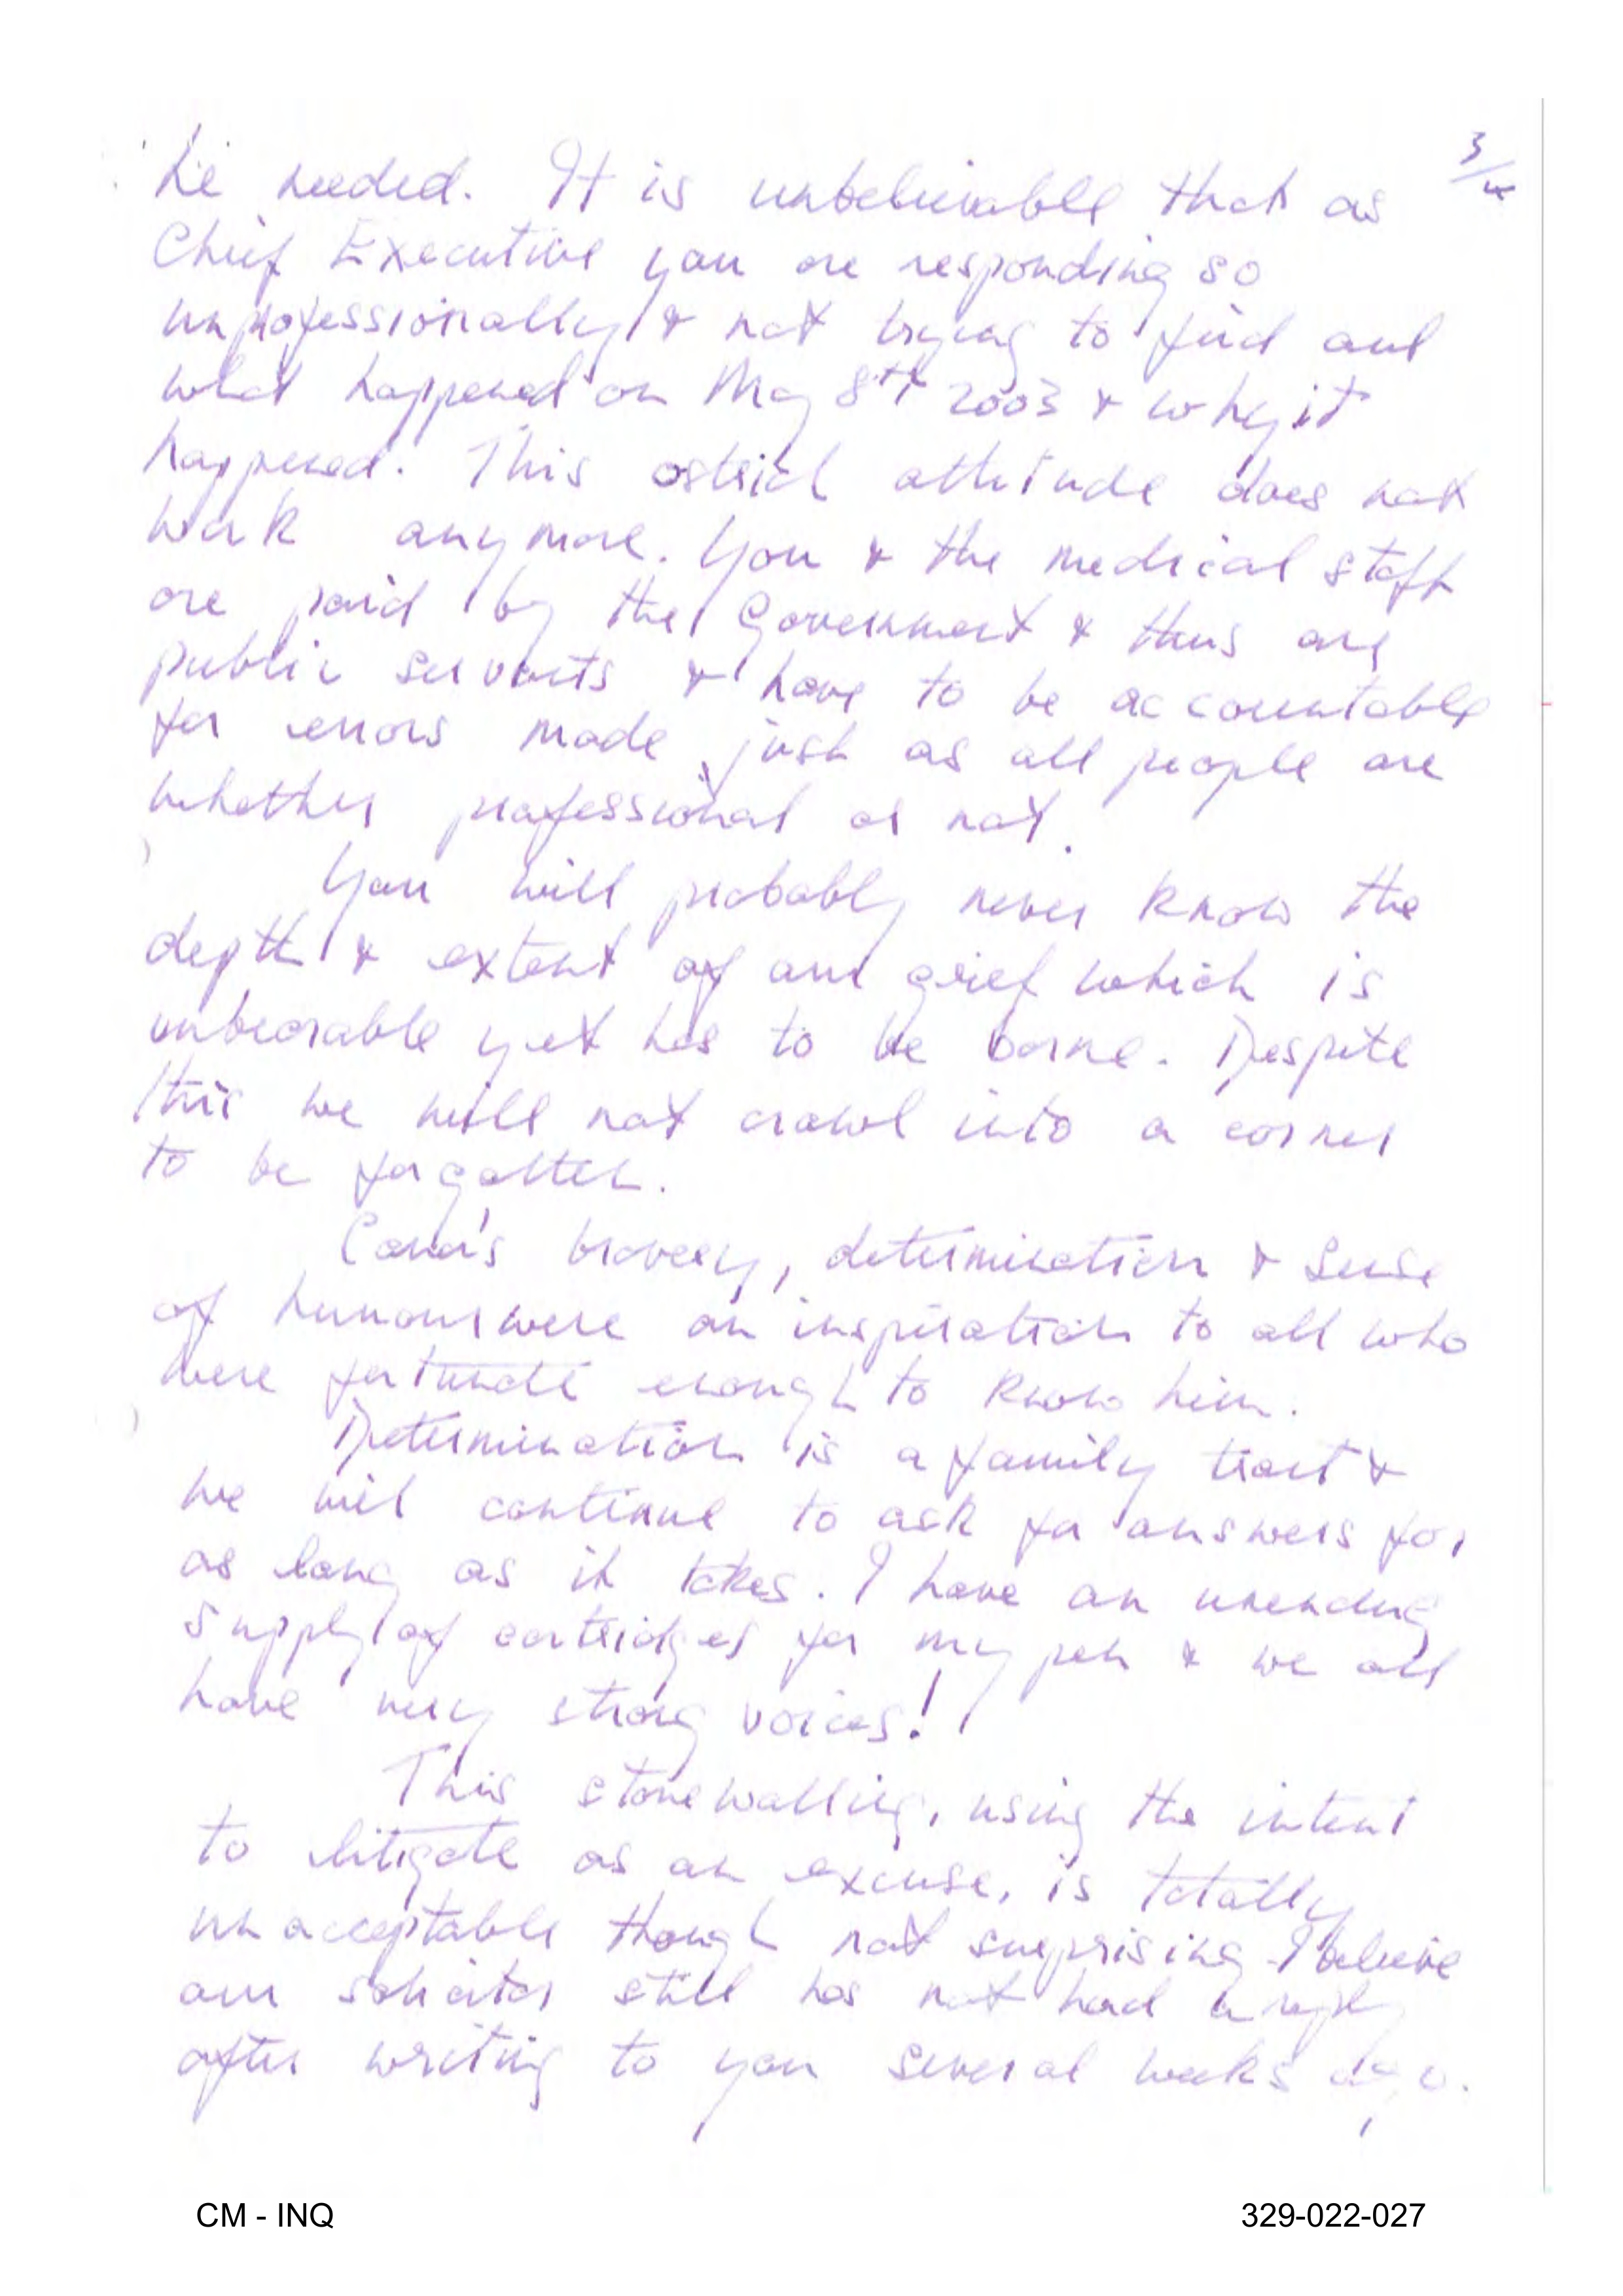 3/4
he needed. It is unbelievable that as
Chief Executive you are responding so
unprofessionally & not trying to find out
what happened on May 8th 2003 & why it
happened. This ostrich attitude does not
work anymore. You & the medical staff
are paid by the Government & thus are
public servants & have to be accountable
for errors made, just as all people are
whether professional or not.
You will probably never know the
depth & extent of our grief which is
unbearable yet has to be borne. Despite
this we will not crawl into a corner
to be forgotten.
Conor's bravery, determination & sense
of humour were an inspiration to all who
were fortunate enough to know him.
Determination is a family trait &
we will continue to ask for answers for
as long as it takes. I have an unending
supply of cartridges for my pen & we all
have very strong voices!
This stonewalling, using the intent
to litigate as an excuse, is totally
unacceptable though not surprising. I believe
our solicitor still has not had a reply
after writing to you several weeks ago.
CM - INQ
329-022-027